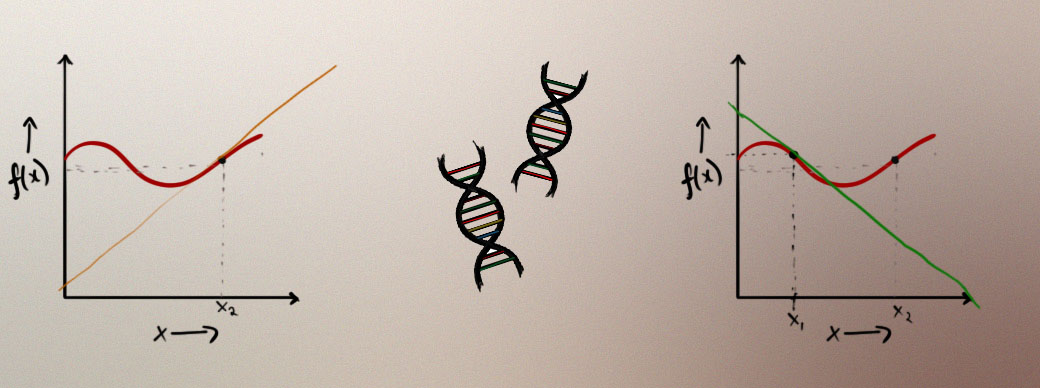 f(x)
x₂
x
f(x)
x₁
x₂
x